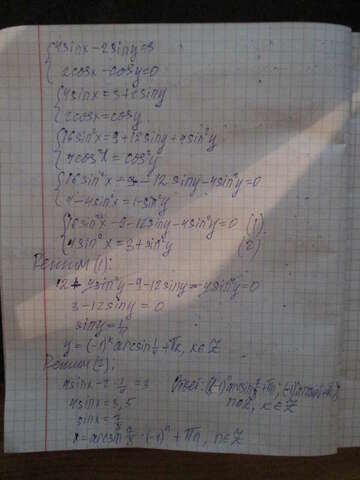 {4sinx-2siny=3
2cosx-cosy=0
{4sinx=3+2siny
2cosx=cosy
{16sin²x=9+12siny+4sin²y
4cos²x=cos²y
{16sin²x-9-12siny-4sin²y=0
4-4sin²x=1-sin²y
{16sin²x-9-12siny-4sin²y=0 (1)
4sin²x=3+sin²y (2)
Решим (1):
12+4sin²y-9-12siny-4sin²y=0
3-12siny=0
siny=1/4
y=(-1)ᵏarcsin1/4+πk, k∈Z
Решим (2):
4sinx-2·1/4=3 Ответ:
4sinx=3,5 n∈Z, k∈Z
sinx=7/8
x=arcsin7/8·(-1)ⁿ+πn, n∈Z